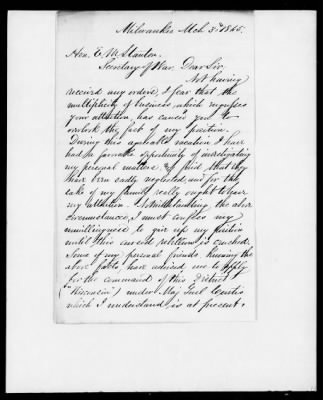 Milwaukee Mch 3d 1865.
Hon. E. M. Stanton.
Secretary of War. Dear Sir
Not having
received any orders, I fear that the
multiplicity of business which engrosses
your attention, has caused you to
overlook the fact of my position.
During this agreeable vacation I have
had a favorable opportunity of investigating
my personal matters & find that they
have been sadly neglected and for the
sake of my family really ought to have
my attention. Notwithstanding the above
circumstances, I must confess my
unwillingness to give up my position
until this cursed rebellion is crushed.
Some of my personal friends knowing the
above facts, have advised me to apply
for the command of this District
(Wisconsin) under Maj Genl Curtis
which I understand is at present